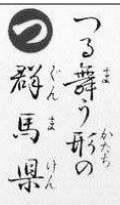 つ
つる舞う形の
群馬県
ま
かたち
ぐんまけん